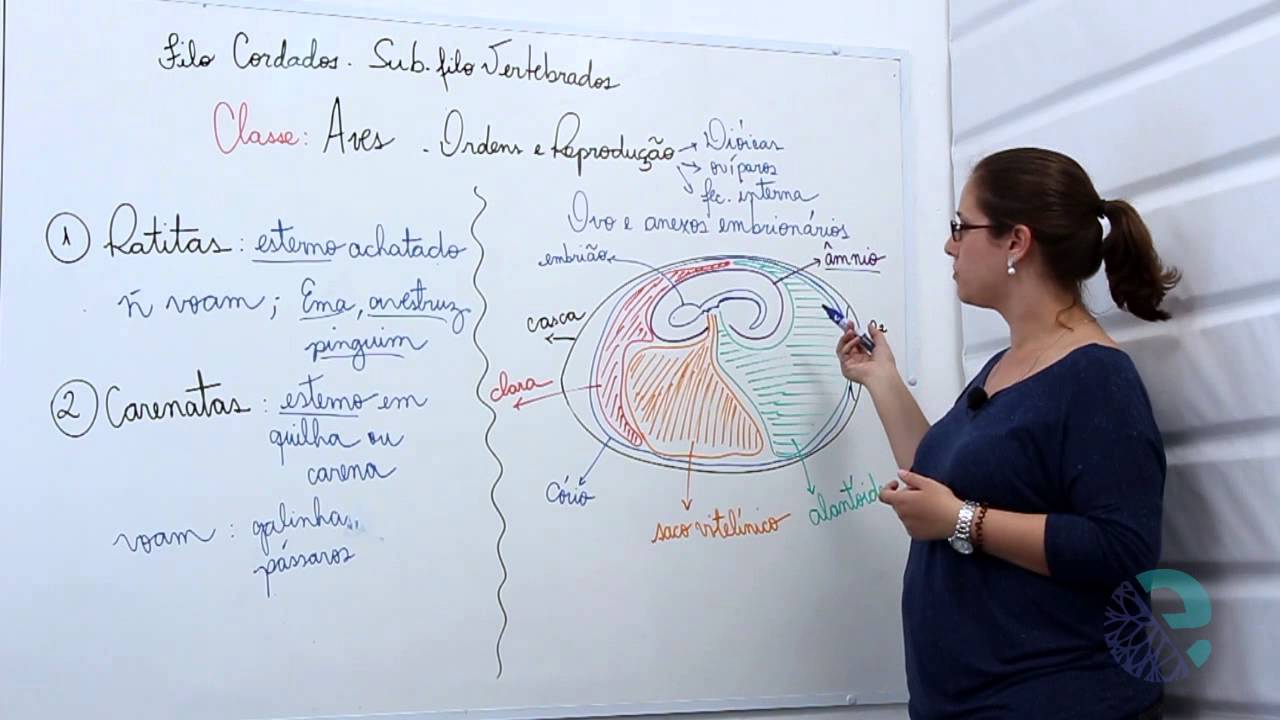 Filo Cordados. Sub.filo Vertebrados
Classe: Aves . Ordens e Reprodução
Dióicas
ovíparos
fec. interna
① Ratitas : esterno achatado
ñ voam ; Ema, avestruz,
pinguim
② Carenatas : esterno em
quilha ou
carena
voam : galinhas,
pássaros
Ovo e anexos embrionários
embrião
âmnio
casca
clara
Cório
saco vitelínico
alantóide